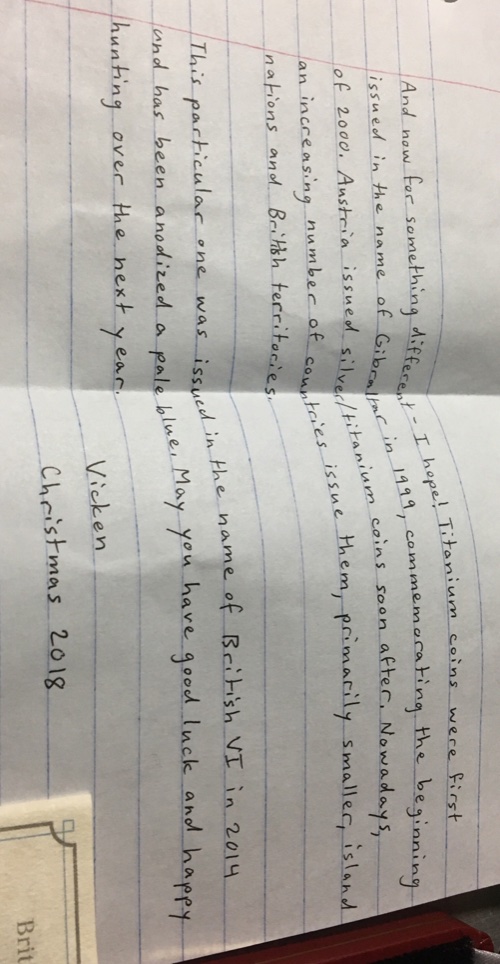 And now for something different - I hope! Titanium coins were first
issued in the name of Gibraltar in 1999, commemorating the beginning
of 2000. Austria issued silver/titanium coins soon after. Nowadays,
an increasing number of countries issue them, primarily smaller, island
nations and British territories.
This particular one was issued in the name of British VI in 2014
and has been anodized a pale blue. May you have good luck and happy
hunting over the next year.
Vicken
Christmas 2018
Brit